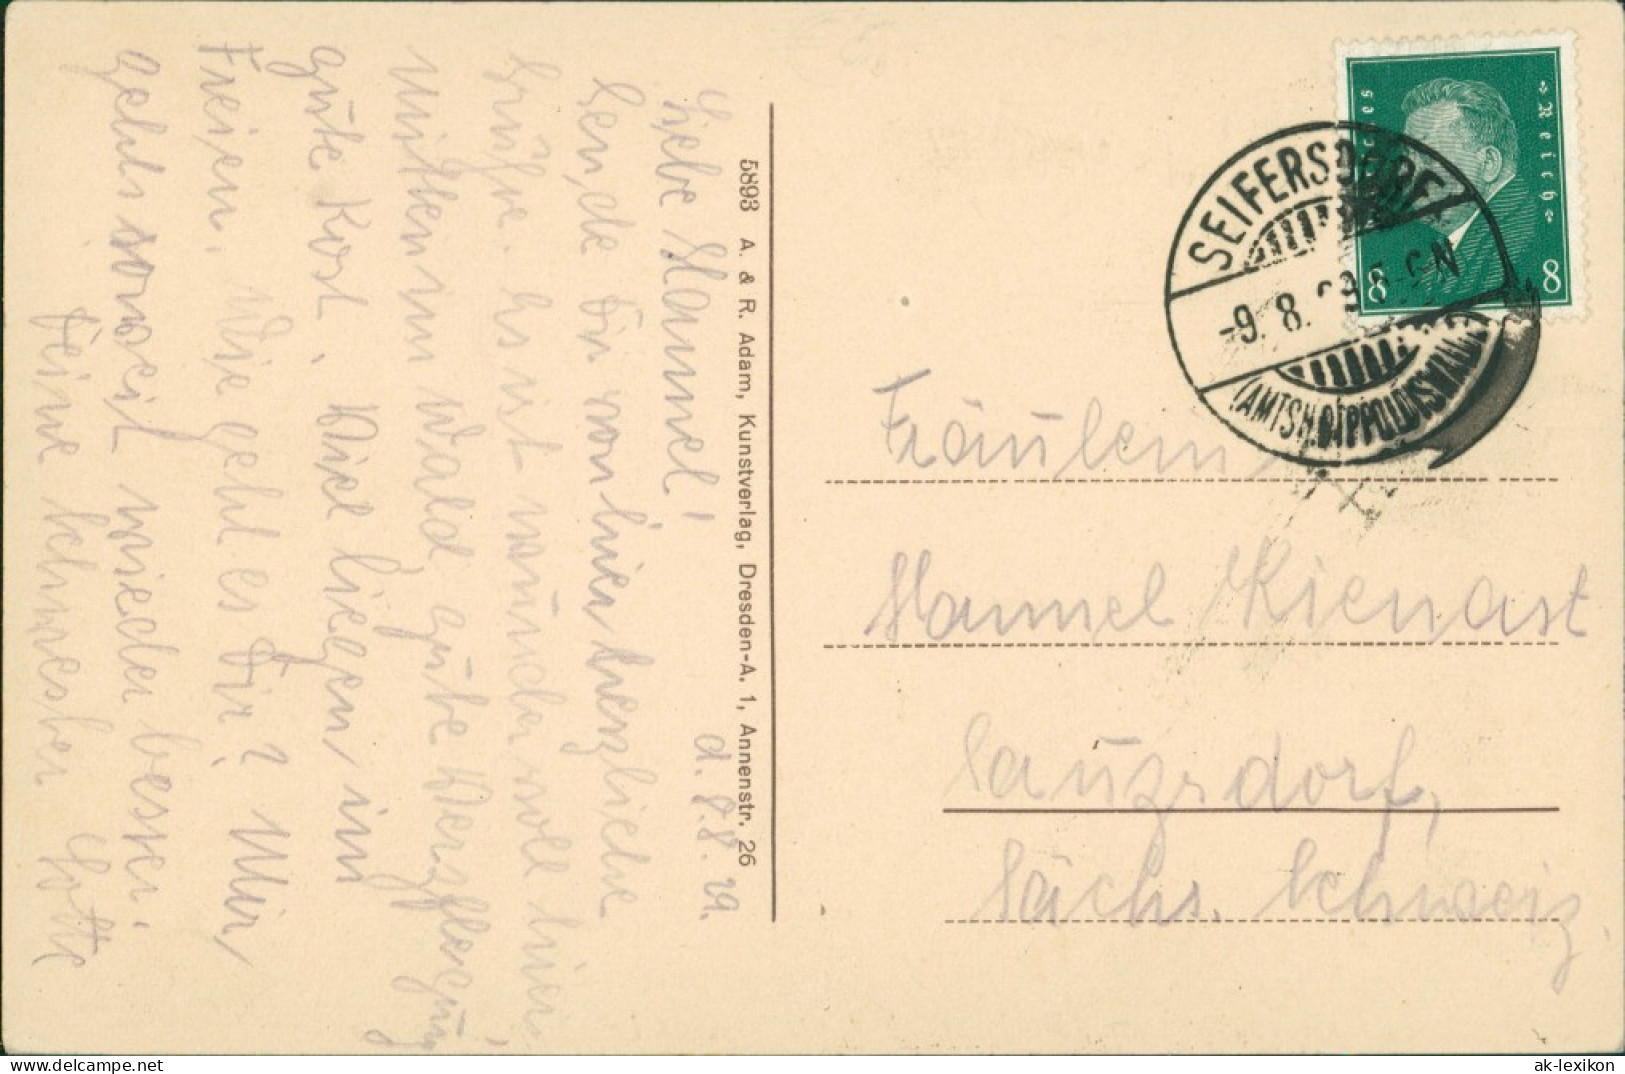 d. 8.8.29.
Liebe Hannel!
Sende Dir von hier herzliche
Grüße. Es ist wunder voll hier
Mitten im Wald, gute Verpflegung
gute Kost. Viel liegen im
Freien. Wie geht es Dir? Mir
geht soweit wieder besser.
Deine Schwester Lotte
5893 A. & R. Adam, Kunstverlag, Dresden-A. 1, Annenstr. 26
Reich
8 8
SEIFERSDORF
-9. 8. 29 5-6 N
(AMTSH. DIPPOLDISWALDE)
Fräulein
Hannel Kienast
Saupsdorf,
Sächs. Schweiz.
www.delcampe.net
ak-lexikon